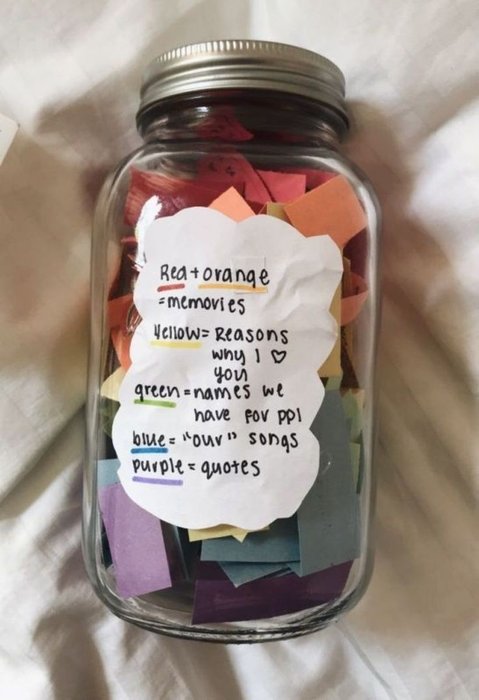 Red + orange
= memories
Yellow = Reasons
why I ♡
you
green = names we
have for ppl
blue = "our" songs
purple = quotes